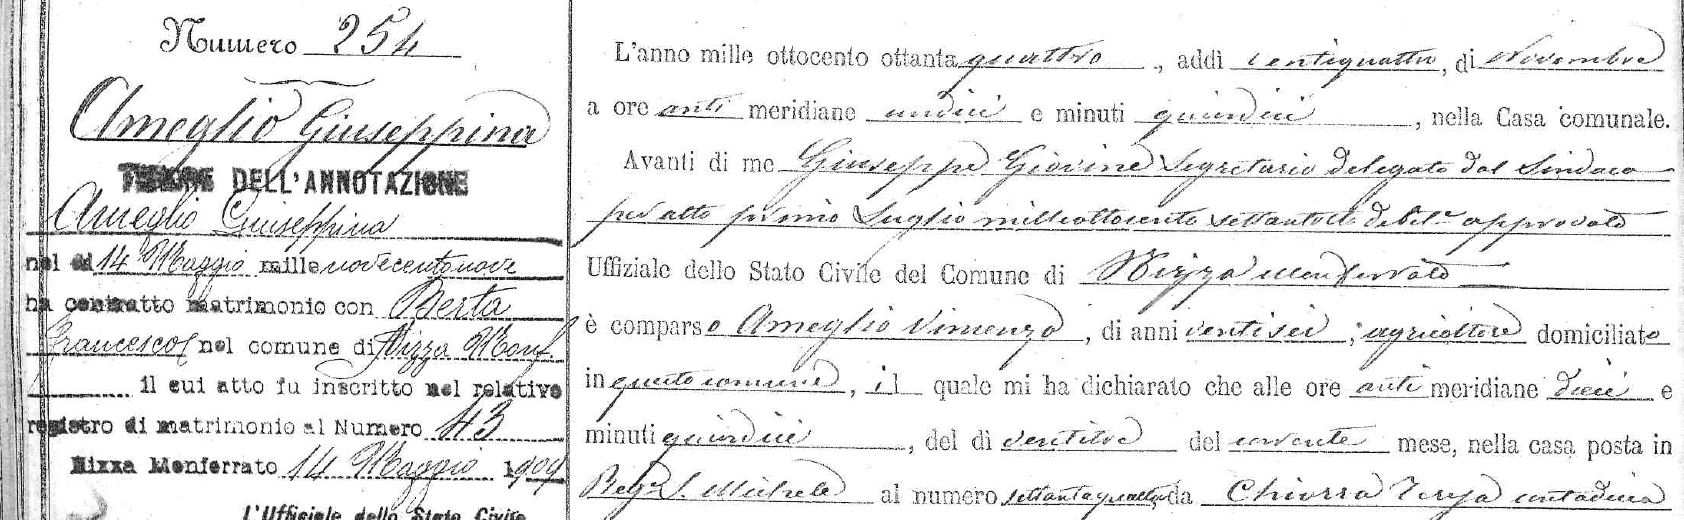 Numero 254
Ameglio Giuseppina
TENORE DELL'ANNOTAZIONE
Ameglio Giuseppina
nel dì 14 Maggio mille novecentonove
ha contratto matrimonio con Berta
Francesco nel comune di Nizza Monf.
il cui atto fu inscritto nel relativo
registro di matrimonio al Numero 43
Nizza Monferrato 14 Maggio 1909
L'Ufficiale dello Stato Civile
L'anno mille ottocento ottanta quattro, addì ventiquattro, di Novembre
a ore anti meridiane undici e minuti quindici, nella Casa comunale.
Avanti di me Giuseppe Giovine Segretario delegato dal Sindaco
per atto primo Luglio milleottocento settantotto debit.e approvato
Uffiziale dello Stato Civile del Comune di Nizza Monferrato
è comparso Ameglio Vincenzo, di anni ventisei, agricoltore domiciliato
in questo comune, il quale mi ha dichiarato che alle ore anti meridiane dieci e
minuti quindici, del dì ventitre del corrente mese, nella casa posta in
Reg.e S. Michele al numero settantaquattro, da Chiorra Teresa contadina